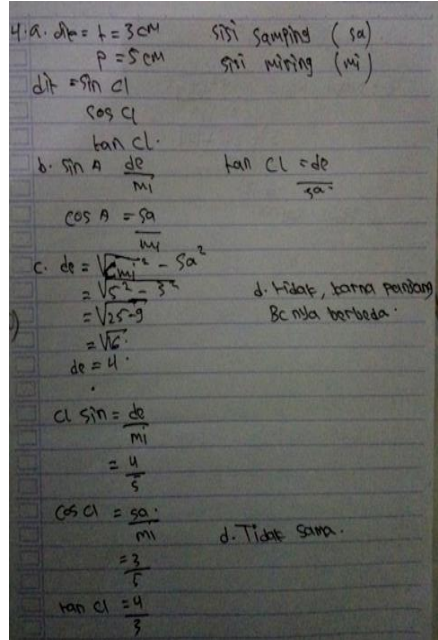 4. a. dik = t = 3 cm
sisi samping (sa)
p = 5 cm
sisi miring (mi)
dit = sin Cl
cos Cl
tan Cl.
b. sin A de/mi
tan Cl = de/sa.
cos A = sa/mi
c. de = √mi² - sa²
= √5² - 3²
= √25-9
= √16.
de = 4.
d. tidak, karna panjang
BC nya berbeda.
Cl sin = de/mi
= 4/5
cos Cl = sa./mi
= 3/5
d. Tidak sama.
tan Cl = 4/3